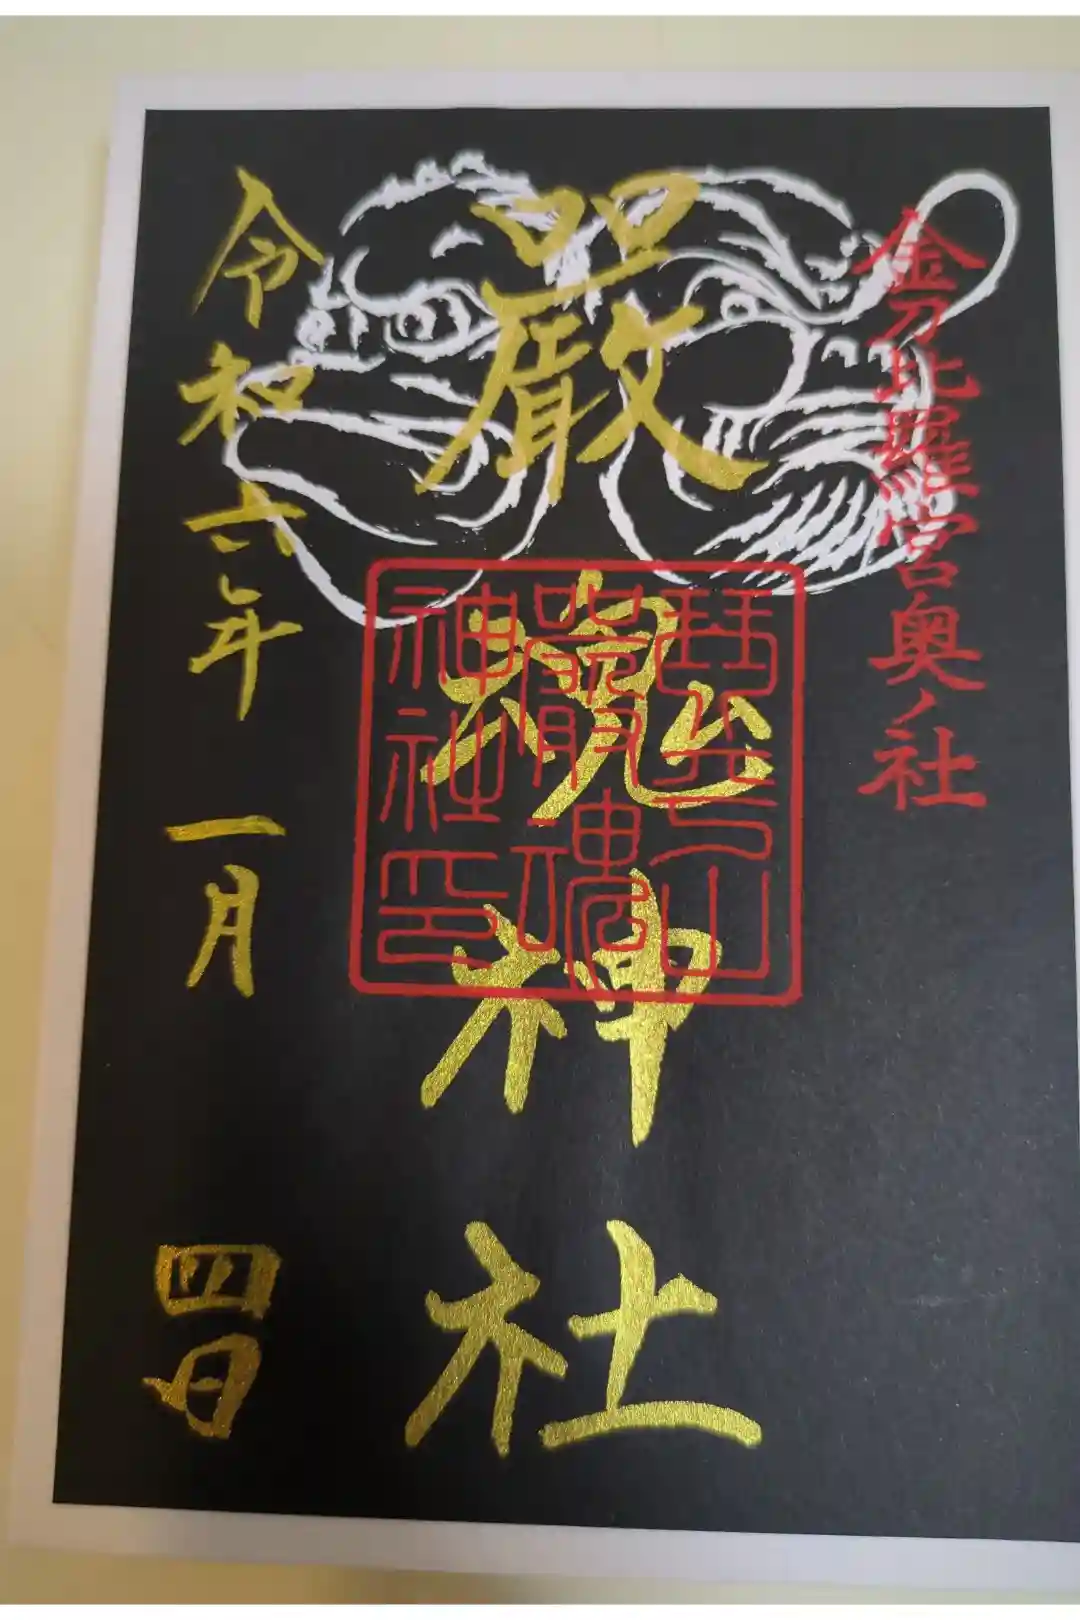 金刀比羅宮奥ノ社
嚴魂神社
琴平山
嚴魂
神社印
令和六年一月四日